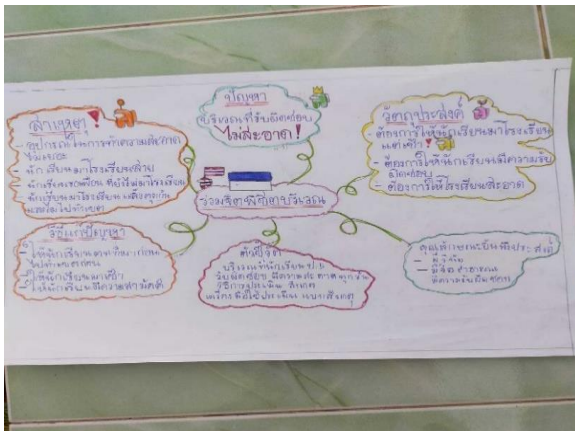 ปัญหา
บริเวณที่รับผิดชอบ
ไม่สะอาด!
สาเหตุ
- อุปกรณ์ในการทำความสะอาด
ไม่เยอะ
- นักเรียนมาโรงเรียนสาย
- นักเรียนมาโรงเรียน
วัตถุประสงค์
- ต้องการให้นักเรียนมาโรงเรียน
แต่เช้า!
- ต้องการให้นักเรียนมีความรับ
ผิดชอบ
- ต้องการให้โรงเรียนสะอาด
ร่วมจิตพิชิตบริเวณ
วิธีแก้ปัญหา
ให้นักเรียนมาเช้า
ให้นักเรียนมีความสามัคคี
ตัวชี้วัด
บริเวณที่นักเรียน
รับผิดชอบ มีความสะอาดทุกวัน
วิธีการประเมิน สังเกต
เครื่องมือที่ใช้ประเมิน แบบสังเกต
คุณลักษณะอันพึงประสงค์
- มีวินัย
- มีจิตสาธารณะ
มีความรับผิดชอบ